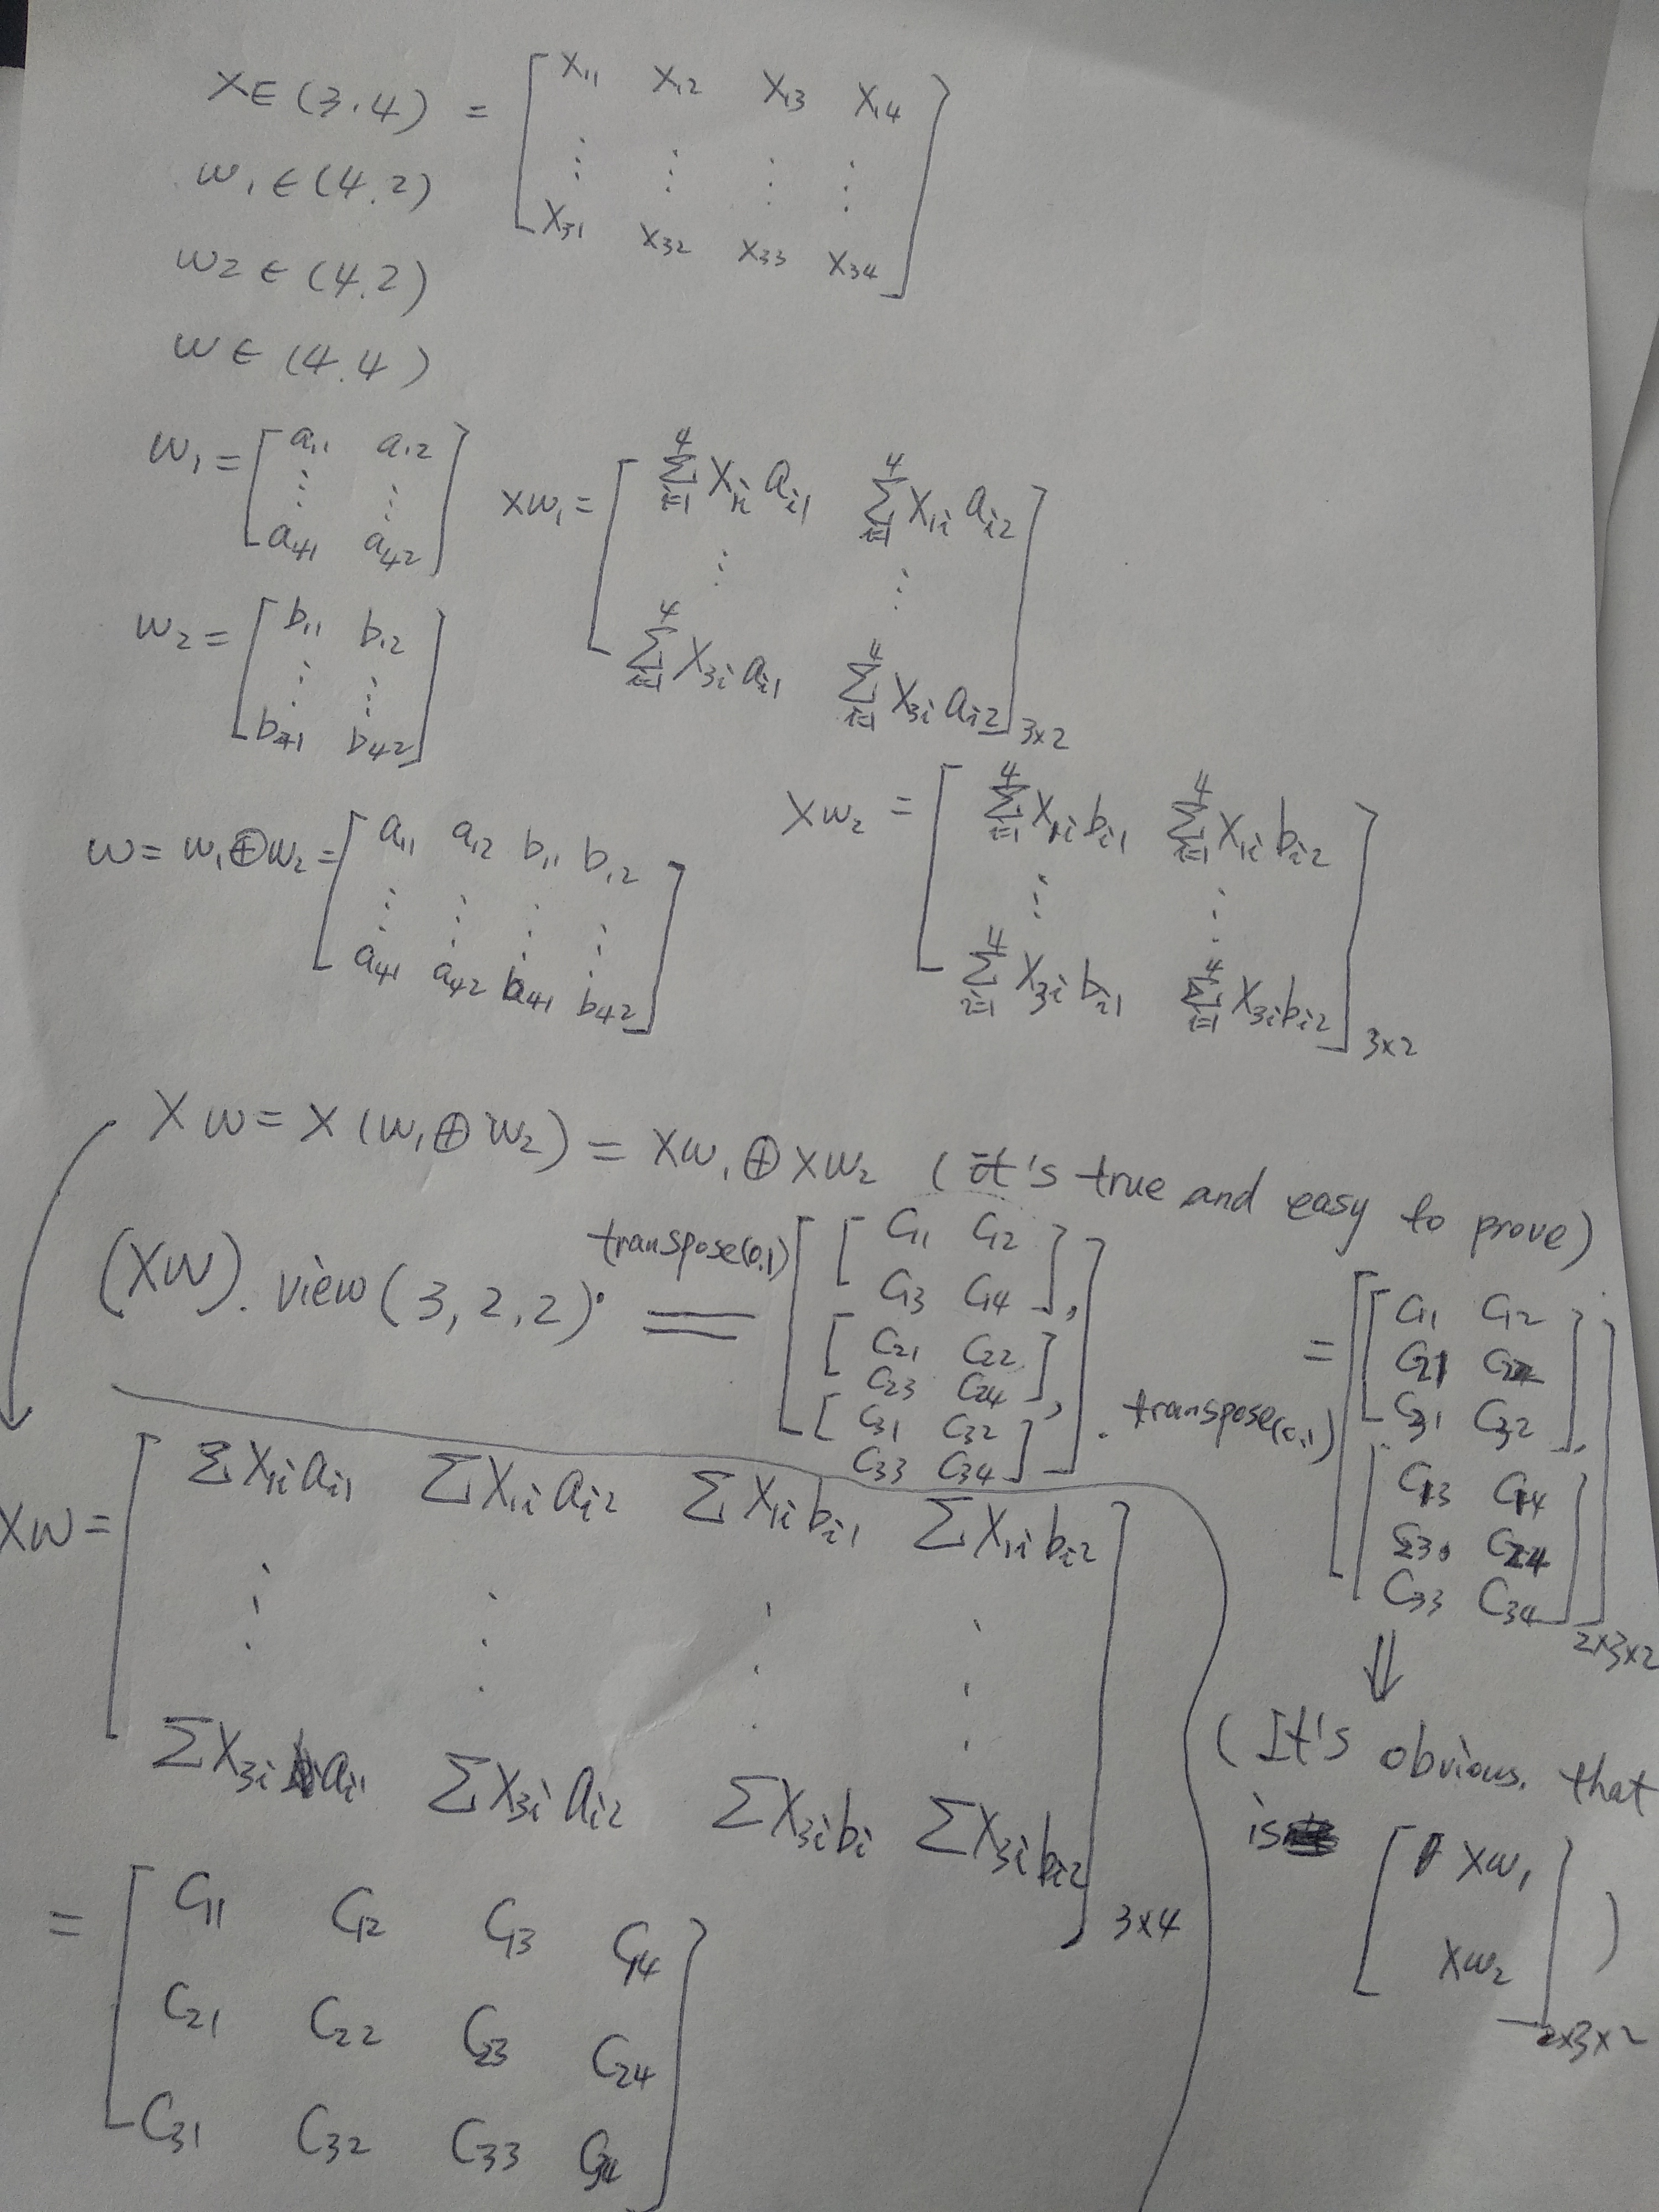 X∈(3.4) = [ X₁₁ X₁₂ X₁₃ X₁₄
⋮ ⋮ ⋮ ⋮
X₃₁ X₃₂ X₃₃ X₃₄ ]
W₁∈(4.2)
W2∈(4.2)
W∈(4.4)
W₁= [ a₁₁ a₁₂
⋮ ⋮
a₄₁ a₄₂ ]
XW₁= [ ∑_{i=1}^{4} X₁ᵢ aᵢ₁ ∑_{i=1}^{4} X₁ᵢ aᵢ₂
⋮ ⋮
∑_{i=1}^{4} X₃ᵢ aᵢ₁ ∑_{i=1}^{4} X₃ᵢ aᵢ₂ ] 3×2
W₂= [ b₁₁ b₁₂
⋮ ⋮
b₄₁ b₄₂ ]
XW₂ = [ ∑_{i=1}^{4} X₁ᵢ bᵢ₁ ∑_{i=1}^{4} X₁ᵢ bᵢ₂
⋮ ⋮
∑_{i=1}^{4} X₃ᵢ bᵢ₁ ∑_{i=1}^{4} X₃ᵢ bᵢ₂ ] 3×2
W= W₁⊕W₂= [ a₁₁ a₁₂ b₁₁ b₁₂
⋮ ⋮ ⋮ ⋮
a₄₁ a₄₂ b₄₁ b₄₂ ]
XW = X (W₁⊕W₂) = XW₁⊕XW₂ (it's true and easy to prove)
(XW). view(3,2,2). transpose(0,1) = [ [ C₁₁ C₁₂
C₁₃ C₁₄ ],
[ C₂₁ C₂₂
C₂₃ C₂₄ ],
[ C₃₁ C₃₂
C₃₃ C₃₄ ] ] . transpose(0,1)
= [ [ C₁₁ C₁₂
C₂₁ C₂₂
C₃₁ C₃₂ ],
[ C₁₃ C₁₄
C₂₃ C₂₄
C₃₃ C₃₄ ] ] 2×3×2
⇓
(It's obvious. that
is [ XW₁
XW₂ ] 2×3×2 )
XW= [ ∑X₁ᵢaᵢ₁ ∑X₁ᵢaᵢ₂ ∑X₁ᵢbᵢ₁ ∑X₁ᵢbᵢ₂
⋮ ⋮ ⋮ ⋮
∑X₃ᵢaᵢ₁ ∑X₃ᵢaᵢ₂ ∑X₃ᵢbᵢ ∑X₃ᵢbᵢ₂ ] 3×4
= [ C₁₁ C₁₂ C₁₃ C₁₄
C₂₁ C₂₂ C₂₃ C₂₄
C₃₁ C₃₂ C₃₃ C₃₄ ]